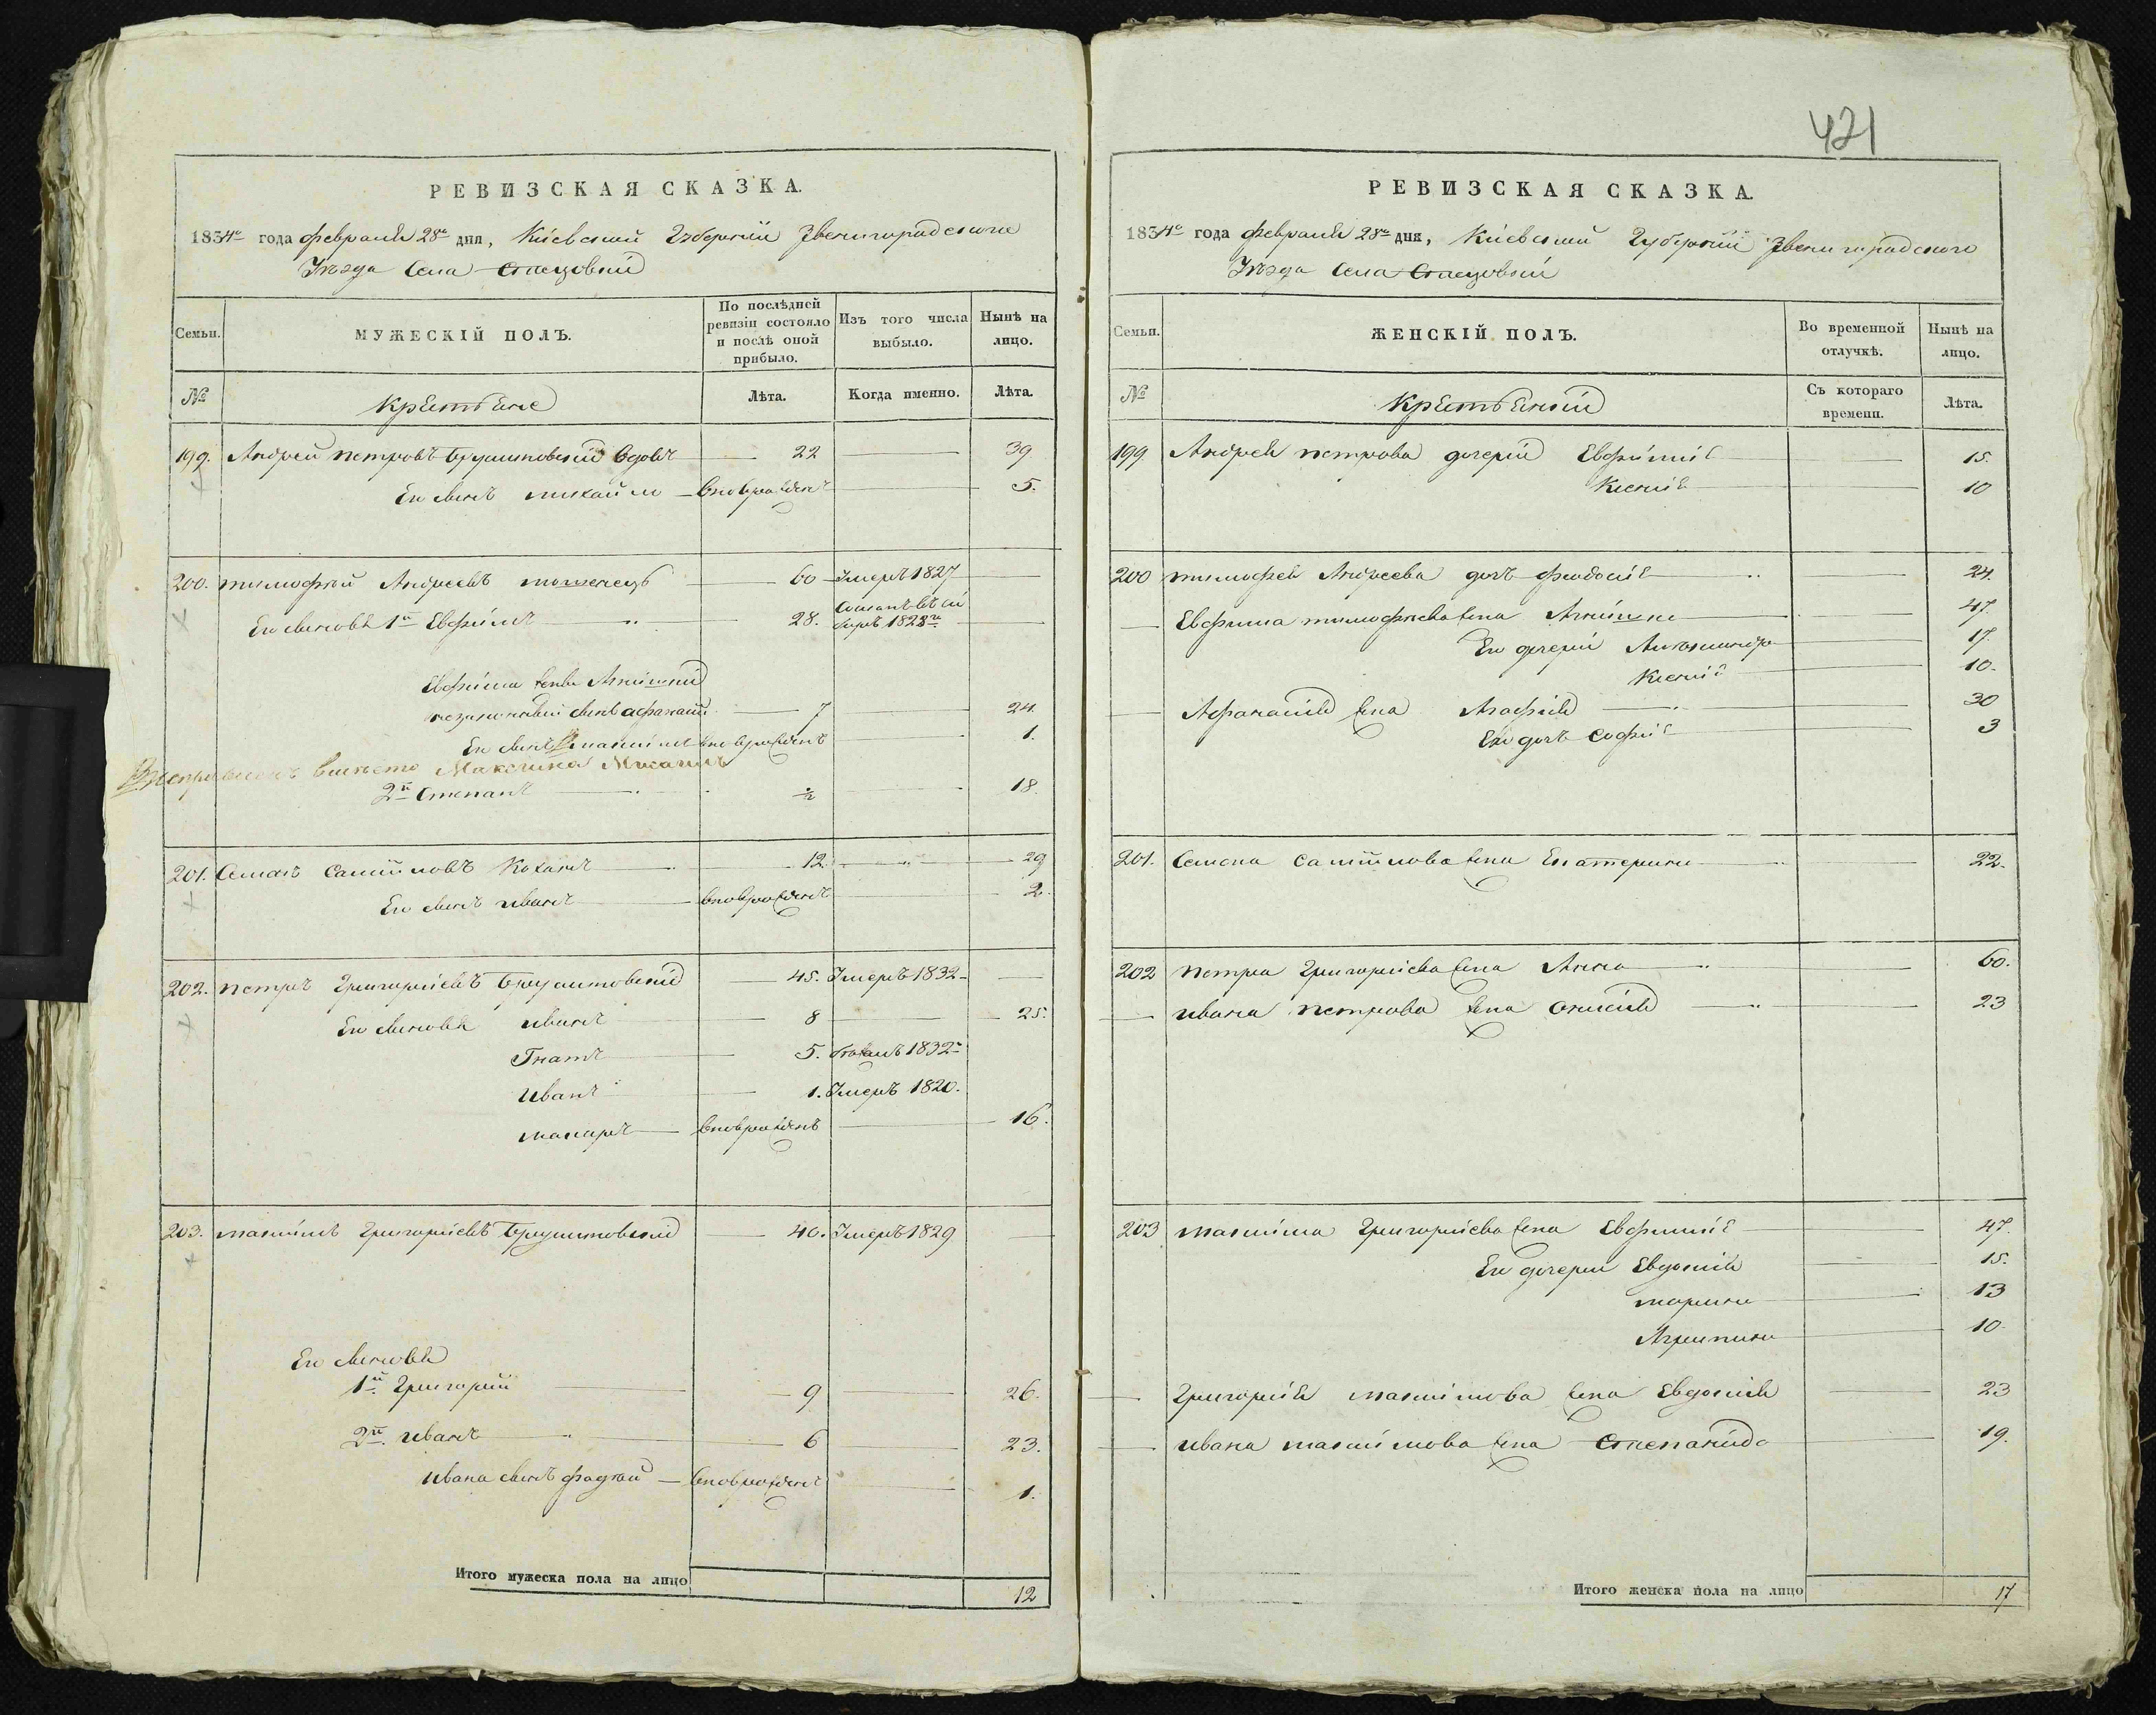 РЕВИЗСКАЯ СКАЗКА.
1834го года февраля 28го дня, Кіевской Губерніи Звенигородского
Уѣзда Села Стецовкій
Семьи.
МУЖЕСКІЙ ПОЛЪ.
По послѣдней ревизіи состояло и послѣ оной прибыло.
Изъ того числа выбыло.
Нынѣ на лицо.
№
Крестьяне
Лѣта.
Когда именно.
Лѣта.
199. Андрей Петровъ вдовъ 22 39
Его сынъ михайло вновьрожденъ 5.
200. тимофей Андреевъ 60 Умеръ 1827
Его сыновья 1й Евфимъ 28.
Евфима жены
сынъ афанасій 7 24.
Его сынъ максимъ вновьрожденъ 1.
вместо Максима
2й Степанъ ½ 18.
201. Семенъ Самійловъ Коханъ 12. 29
Его сынъ иванъ вновьрожденъ 2.
202. петръ Григоріевъ 45. Умеръ 1832
Его сыновья иванъ 8 25.
Гнатъ 5. 1832го
иванъ 1. Умеръ 1820.
макаръ вновьрожденъ 16.
203. максимъ Григоріевъ 40. Умеръ 1829
Его сыновья
1й Григорій 9 26.
2й иванъ 6 23.
ивана сынъ фадѣй вновьрожденъ 1.
Итого мужеска пола на лицо 12
421
РЕВИЗСКАЯ СКАЗКА.
1834го года февраля 28го дня, Кіевской Губерніи Звенигородского
Уѣзда Села Стецовкій
Семьи.
ЖЕНСКІЙ ПОЛЪ.
Во временной отлучкѣ.
Нынѣ на лицо.
№
Крестьянкій
Съ котораго времени.
Лѣта.
199. Андрея петрова дочерій Евфимія 15.
Ксенія 10
200 тимофея Андреева дочь феодосія 24.
Евфима тимофеева жена 47.
Его дочерій Александра 17.
Ксенія 10.
Афанасія жена Агафія 30
Его дочь Софія 3
201. Семена Самійлова жена Екатерина 22.
202 петра Григоріева жена Анна 60.
ивана петрова жена Онисія 23
203 максима Григоріева жена Евфимія 47.
Его дочери Евдокія 15.
марина 13
Агрипина 10.
Григорія максимова жена Евдокія 23
ивана максимова жена Степанида 19.
Итого женска пола на лицо 17